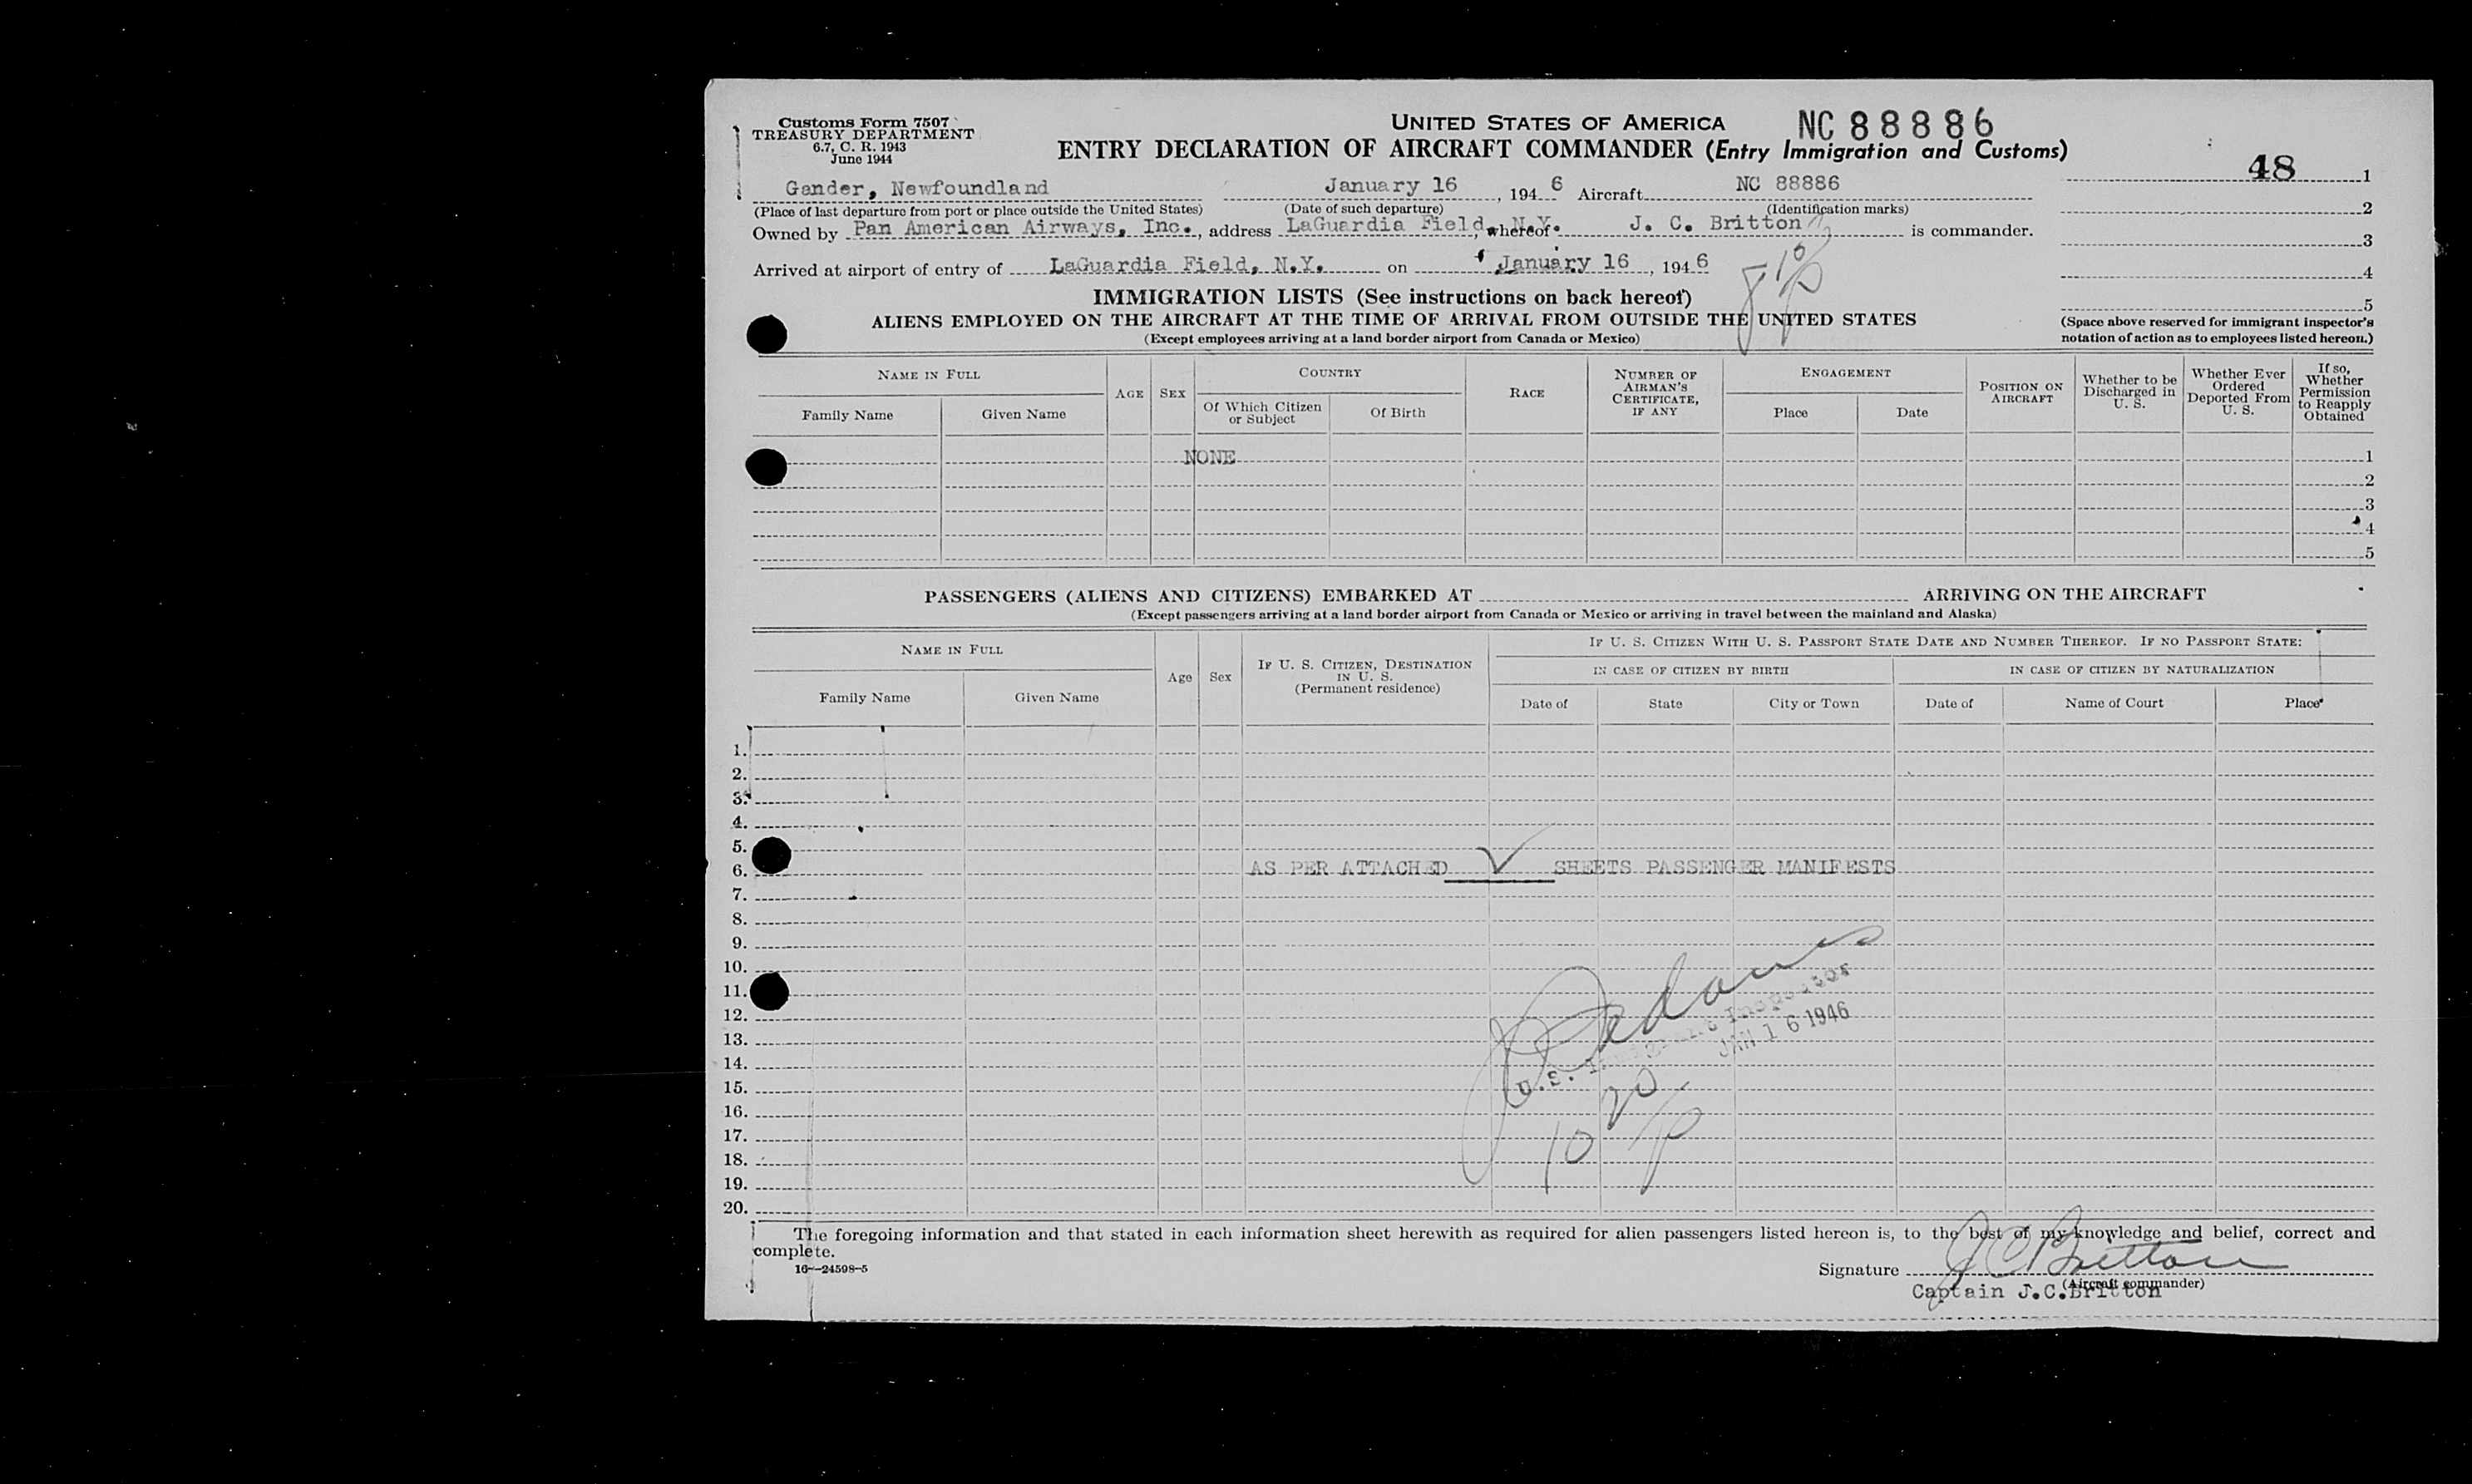 Customs Form 7507
TREASURY DEPARTMENT
6.7, C. R. 1943
June 1944
UNITED STATES OF AMERICA
NC 88886
ENTRY DECLARATION OF AIRCRAFT COMMANDER (Entry Immigration and Customs)
48 1
Gander, Newfoundland January 16, 194 6 Aircraft NC 88886
(Place of last departure from port or place outside the United States) (Date of such departure) (Identification marks)
2
Owned by Pan American Airways, Inc., address LaGuardia Field, N.Y. whereof J. C. Britton is commander.
3
Arrived at airport of entry of LaGuardia Field, N.Y. on January 16, 194 6
4
IMMIGRATION LISTS (See instructions on back hereof)
5
ALIENS EMPLOYED ON THE AIRCRAFT AT THE TIME OF ARRIVAL FROM OUTSIDE THE UNITED STATES
(Except employees arriving at a land border airport from Canada or Mexico)
(Space above reserved for immigrant inspector's
notation of action as to employees listed hereon.)
NAME IN FULL
Family Name
Given Name
AGE
SEX
COUNTRY
Of Which Citizen
or Subject
Of Birth
RACE
NUMBER OF
AIRMAN'S
CERTIFICATE,
IF ANY
ENGAGEMENT
Place
Date
POSITION ON
AIRCRAFT
Whether to be
Discharged in
U. S.
Whether Ever
Ordered
Deported From
U. S.
If so,
Whether
Permission
to Reapply
Obtained
NONE
1
2
3
4
5
PASSENGERS (ALIENS AND CITIZENS) EMBARKED AT ARRIVING ON THE AIRCRAFT
(Except passengers arriving at a land border airport from Canada or Mexico or arriving in travel between the mainland and Alaska)
NAME IN FULL
Family Name
Given Name
Age
Sex
IF U. S. CITIZEN, DESTINATION
IN U. S.
(Permanent residence)
IF U. S. CITIZEN WITH U. S. PASSPORT STATE DATE AND NUMBER THEREOF. IF NO PASSPORT STATE:
IN CASE OF CITIZEN BY BIRTH
IN CASE OF CITIZEN BY NATURALIZATION
Date of
State
City or Town
Date of
Name of Court
Place
1.
2.
3.
4.
5.
6. AS PER ATTACHED SHEETS PASSENGER MANIFESTS
7.
8.
9.
10.
11.
12.
13.
14.
15.
16.
17.
18.
19.
20.
U.S. Immigrant Inspector
JAN 16 1946
10 20 P
The foregoing information and that stated in each information sheet herewith as required for alien passengers listed hereon is, to the best of my knowledge and belief, correct and
complete.
16—24598-5
Signature J C Britton
(Aircraft commander)
Captain J.C.Britton